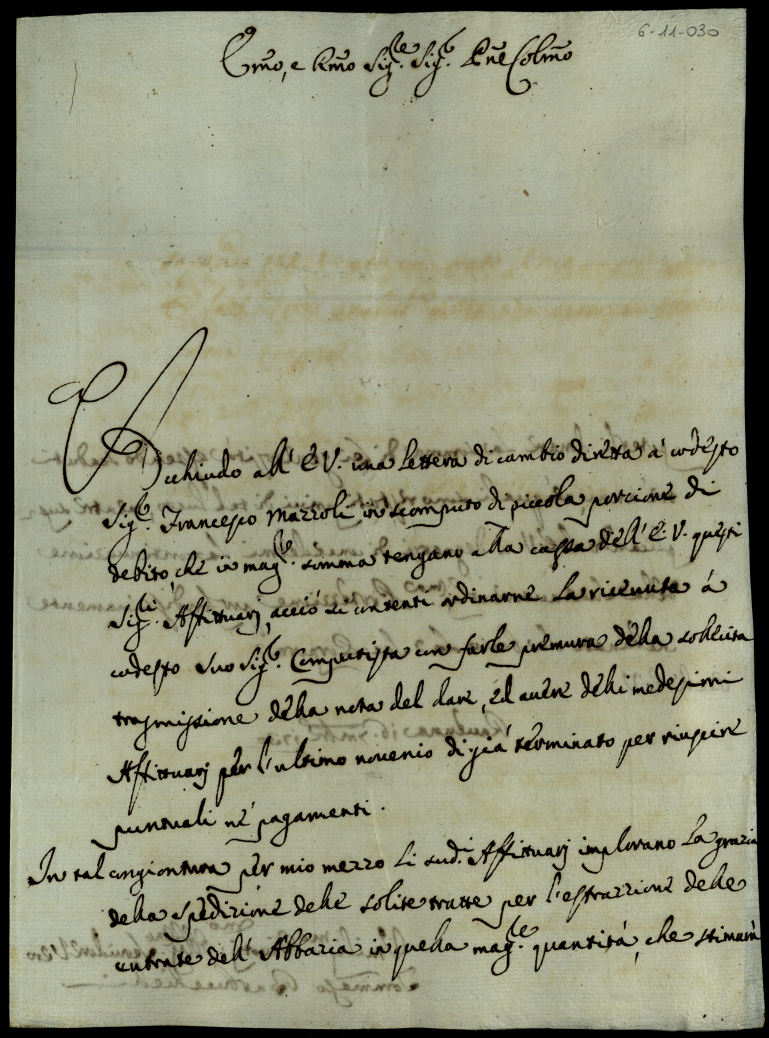 6-11-030
Em̃o, e Rm̃o Sig:re Sig:r Pñe Colm̃o
Acchiudo all' E V. una lettera di cambio diretta à codesto
Sig:r Francesco Mazzoli in scomputo di piccola porzione di
debito, che in mag:re somma tengano alla cassa dell' E V. questi
Sig:ri Affittuarj, acciò si contenti ordinarne la ricevuta à
codesto suo Sig:r Computista con farle premura della sollecita
trasmissione della nota del dare, ed avere delli medesimi
Affittuarj per l'ultimo novenio di già terminato per riuscire
puntuali né pagamenti.
In tal congiontura per mio mezzo li sud:i Affittuarj implorano la grazia
della spedizione delle solite tratte per l'estrazzione delle
entrate dell' Abbazia in quella mag:re quantità, che stimarà